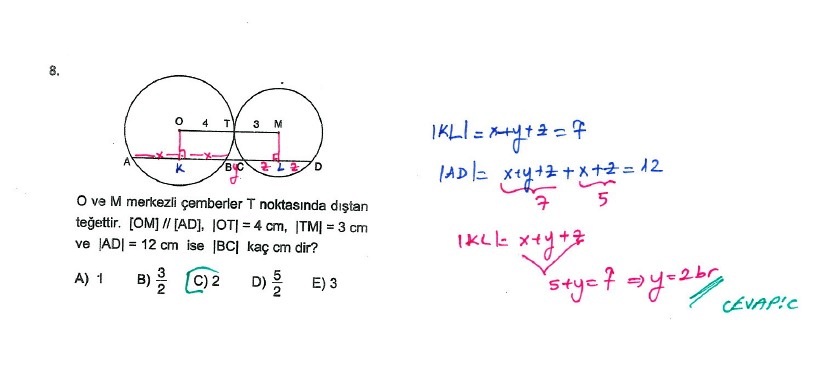 8.
O 4 T 3 M
A x x B y C z L z D
K
O ve M merkezli çemberler T noktasında dıştan
teğettir. [OM] // [AD], |OT| = 4 cm, |TM| = 3 cm
ve |AD| = 12 cm ise |BC| kaç cm dir?
A) 1 B) 3/2 C) 2 D) 5/2 E) 3
|KL| = x+y+z = 7
|AD| = x+y+z + x+z = 12
7 5
|KL| = x+y+z
5+y=7 ⇒ y=2br
CEVAP:C